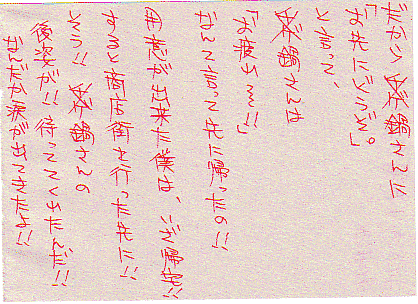 だから番鍋さんに
「お先にどうぞ。」
と言って、
番鍋さんは
「お疲れ〜!!」
なんて言って先に帰ったの!!
用意が出来た僕は、いざ帰宅!!
すると商店街を行った先に!!
そう!! 番鍋さんの
後姿が!! 待っててくれたんだ!!
なんだか涙が出てきたよ!!